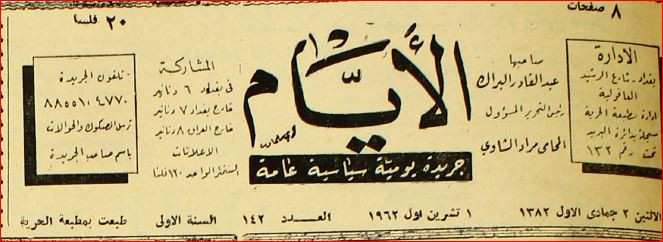 ٨ صفحات
٢٠ فلسا
الادارة
بغداد - شارع الرشيد
العاقولية
ادارة مطبعة الحرية
مسجلة بدائرة البريد
تحت رقم ١٣٢
صاحبها
عبدالقادر البراك
رئيس التحرير المسؤول
المحامي مراد الشاوي
الأيام
جريدة يومية سياسية عامة
المشاركة
في بغداد ٦ دنانير
خارج بغداد ٧ دنانير
خارج العراق ٨ دنانير
الاعلانات
السنتمتر الواحد ١٢٠ فلسا
تلفون الجريدة
٨٨٥٥١٠٤٧٧٠
ترسل الصكوك والحوالات
باسم صاحب الجريدة
الاثنين ٢ جمادى الاول ١٣٨٢
١ تشرين اول ١٩٦٢
العدد ١٤٢
السنة الاولى
طبعت بمطبعة الحرية